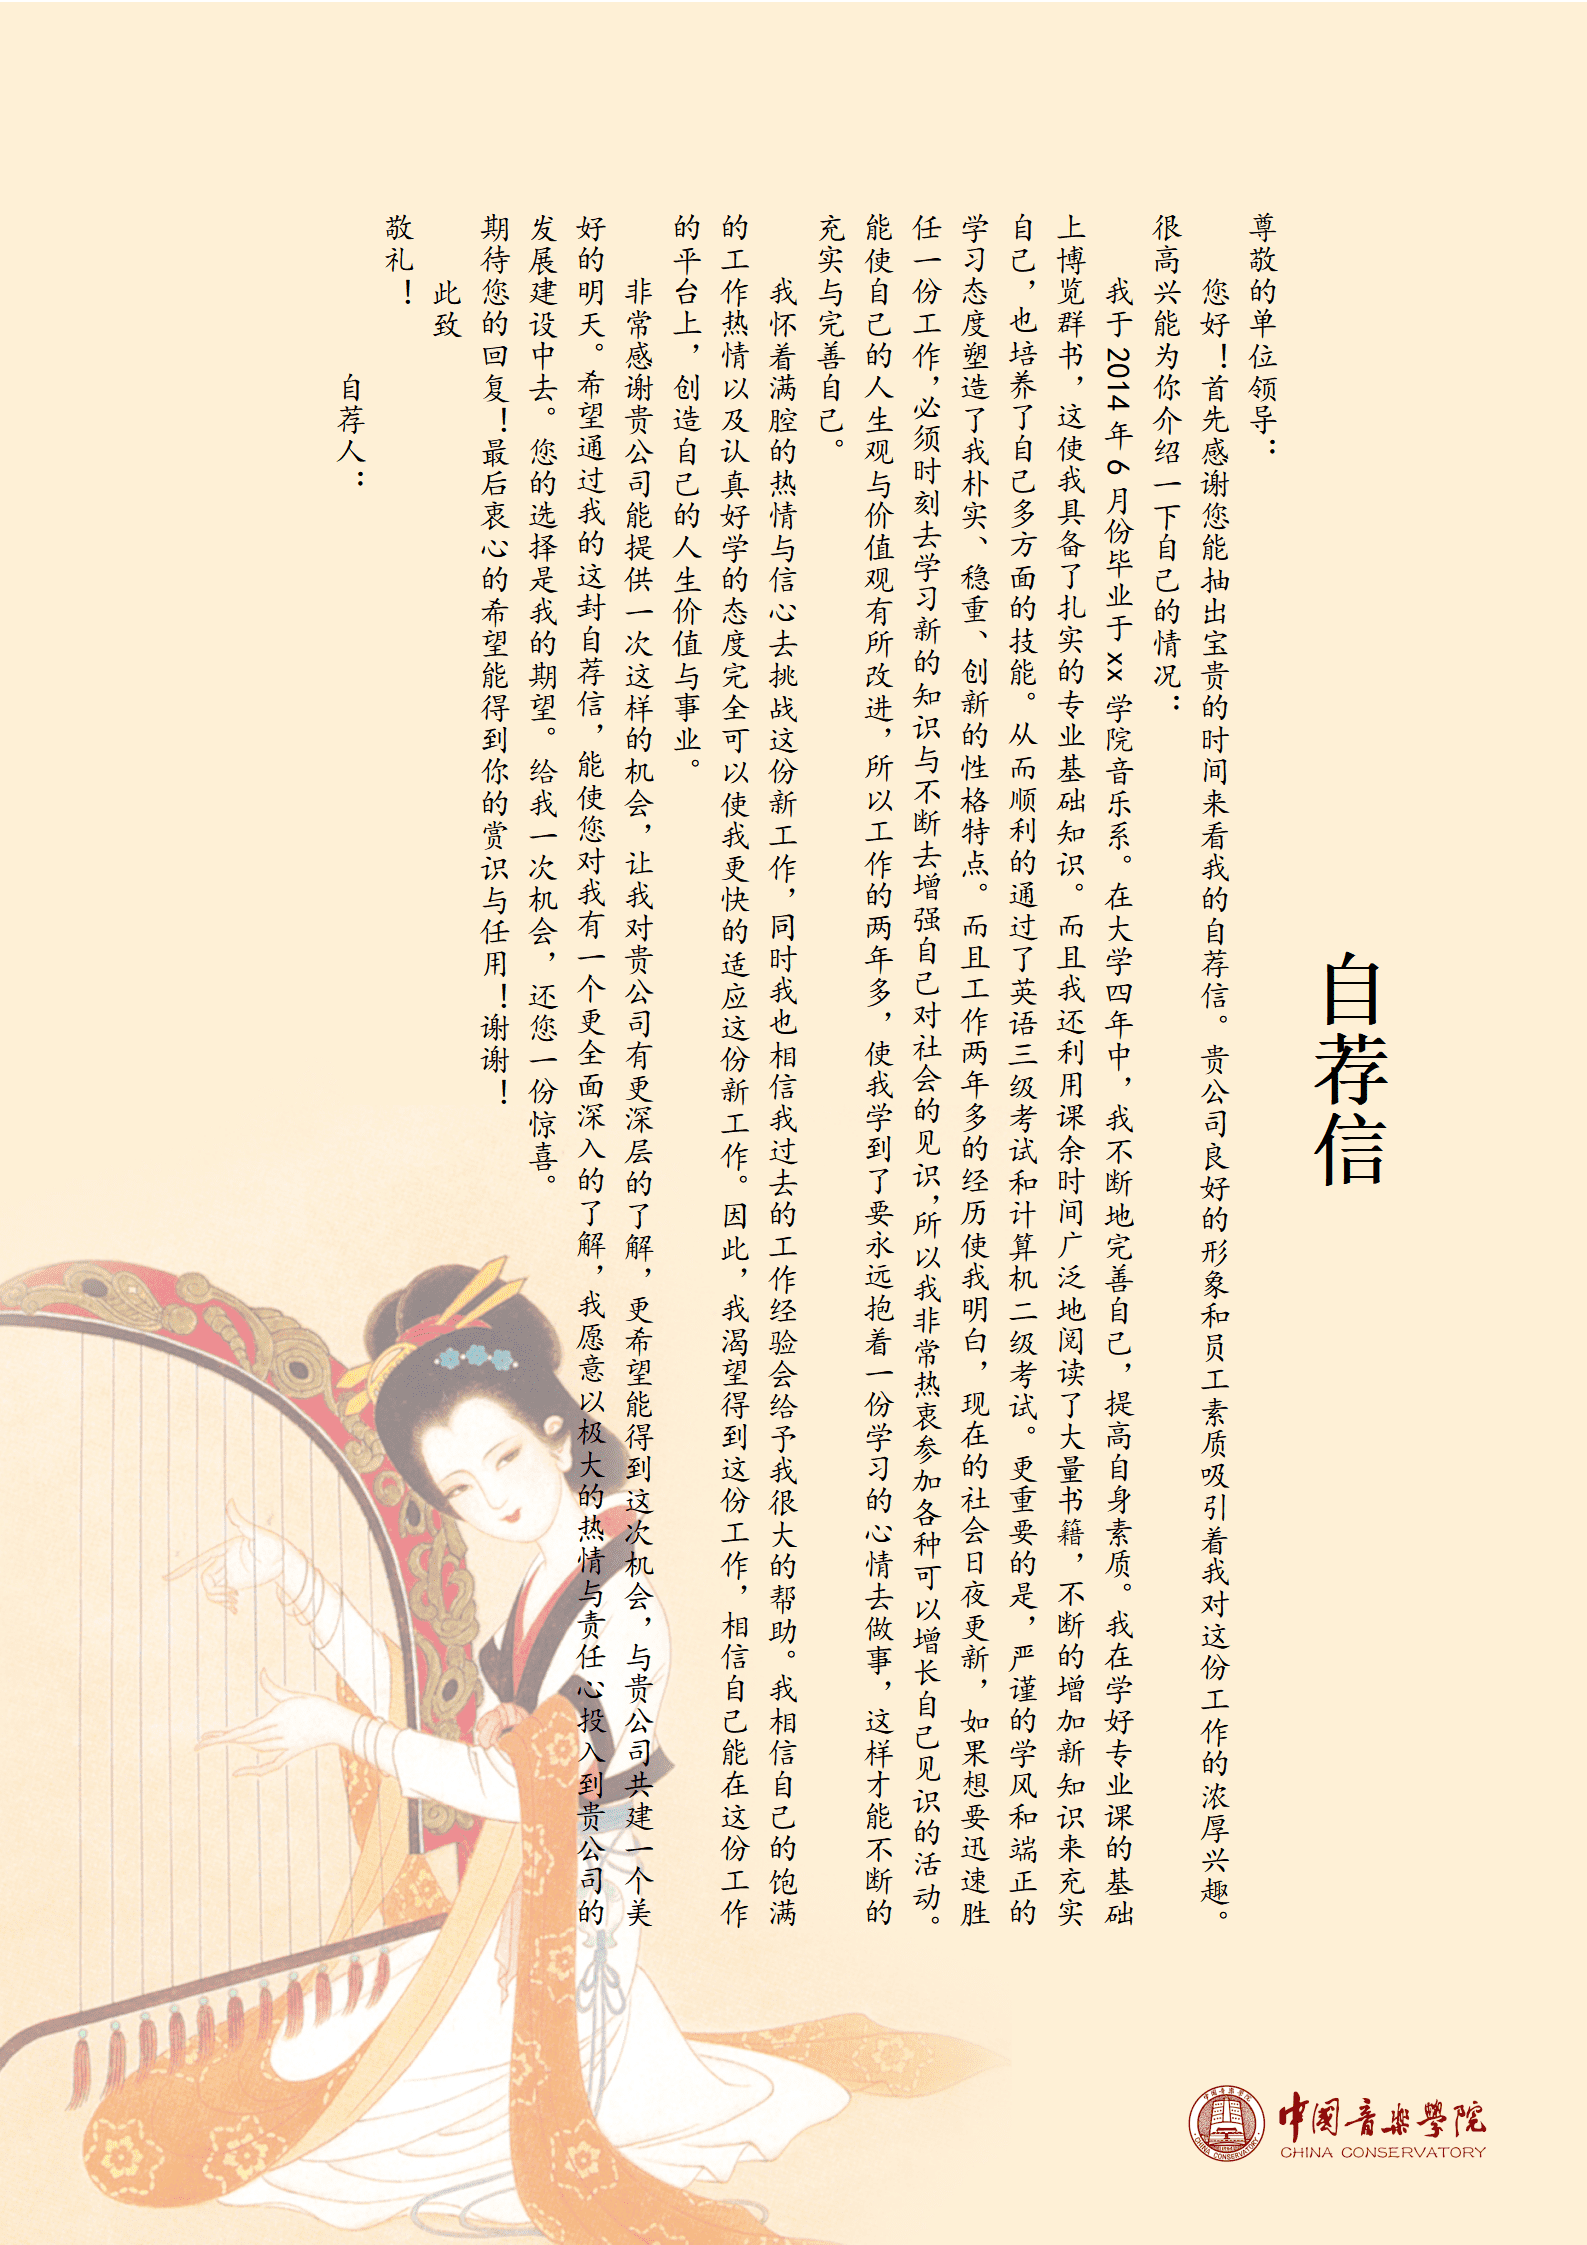 自荐信
尊敬的单位领导：
您好！首先感谢您能抽出宝贵的时间来看我的自荐信。贵公司良好的形象和员工素质吸引着我对这份工作的浓厚兴趣。
很高兴能为你介绍一下自己的情况：
我于 2014 年 6 月份毕业于 xx 学院音乐系。在大学四年中，我不断地完善自己，提高自身素质。我在学好专业课的基础
上博览群书，这使我具备了扎实的专业基础知识。而且我还利用课余时间广泛地阅读了大量书籍，不断的增加新知识来充实
自己，也培养了自己多方面的技能。从而顺利的通过了英语三级考试和计算机二级考试。更重要的是，严谨的学风和端正的
学习态度塑造了我朴实、稳重、创新的性格特点。而且工作两年多的经历使我明白，现在的社会日夜更新，如果想要迅速胜
任一份工作，必须时刻去学习新的知识与不断去增强自己对社会的见识，所以我非常热衷参加各种可以增长自己见识的活动。
能使自己的人生观与价值观有所改进，所以工作的两年多，使我学到了要永远抱着一份学习的心情去做事，这样才能不断的
充实与完善自己。
我怀着满腔的热情与信心去挑战这份新工作，同时我也相信我过去的工作经验会给予我很大的帮助。我相信自己的饱满
的工作热情以及认真好学的态度完全可以使我更快的适应这份新工作。因此，我渴望得到这份工作，相信自己能在这份工作
的平台上，创造自己的人生价值与事业。
非常感谢贵公司能提供一次这样的机会，让我对贵公司有更深层的了解，更希望能得到这次机会，与贵公司共建一个美
好的明天。希望通过我的这封自荐信，能使您对我有一个更全面深入的了解，我愿意以极大的热情与责任心投入到贵公司的
发展建设中去。您的选择是我的期望。给我一次机会，还您一份惊喜。
期待您的回复！最后衷心的希望能得到你的赏识与任用！谢谢！
此致
敬礼！
自荐人：
中国音乐学院
CHINA CONSERVATORY
中国音乐学院
CHINA CONSERVATORY